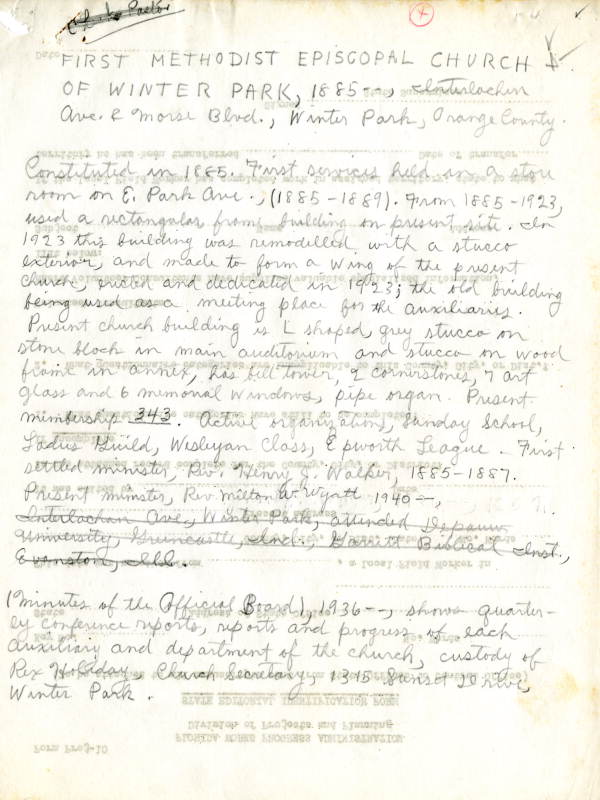 FIRST METHODIST EPISCOPAL CHURCH
OF WINTER PARK, 1885 --, Interlachen
Ave. & Morse Blvd., Winter Park, Orange County.
Constituted in 1885. First services held in a store
room on E. Park Ave., (1885-1889). From 1885-1923,
used a rectangular frame building on present site. In
1923 this building was remodelled with a stucco
exterior, and made to form a wing of the present
church, erected and dedicated in 1923; the old building
being used as a meeting place for the auxiliaries.
Present church building is L shaped, grey stucco on
stone block in main auditorium and stucco on wood
frame in annex, has bell tower, 2 cornerstones, 7 art
glass and 6 memorial windows, pipe organ. Present
membership 343. Active organizations, Sunday School,
Ladies Guild, Wesleyan Class, Epworth League. First
settled minister, Rev. Henry J. Walker, 1885-1887.
Present minister, Rev Milton W. Wyatt 1940 --,
Interlachan Ave., Winter Park, attended Depauw
University, Greencastle, Ind., Garrett Biblical Inst.,
Evanston, Ill.
(Minutes of the Official Board), 1936 --, shows quarter-
ly conference reports, reports and progress of each
auxiliary and department of the church, custody of
Rex Holiday, Church Secretary, 1315 Sunset Drive,
Winter Park.
STATE EDITORIAL IDENTIFICATION FORM
Division of Projects and Planning
FLORIDA WORKS PROGRESS ADMINISTRATION
Form Proj-10